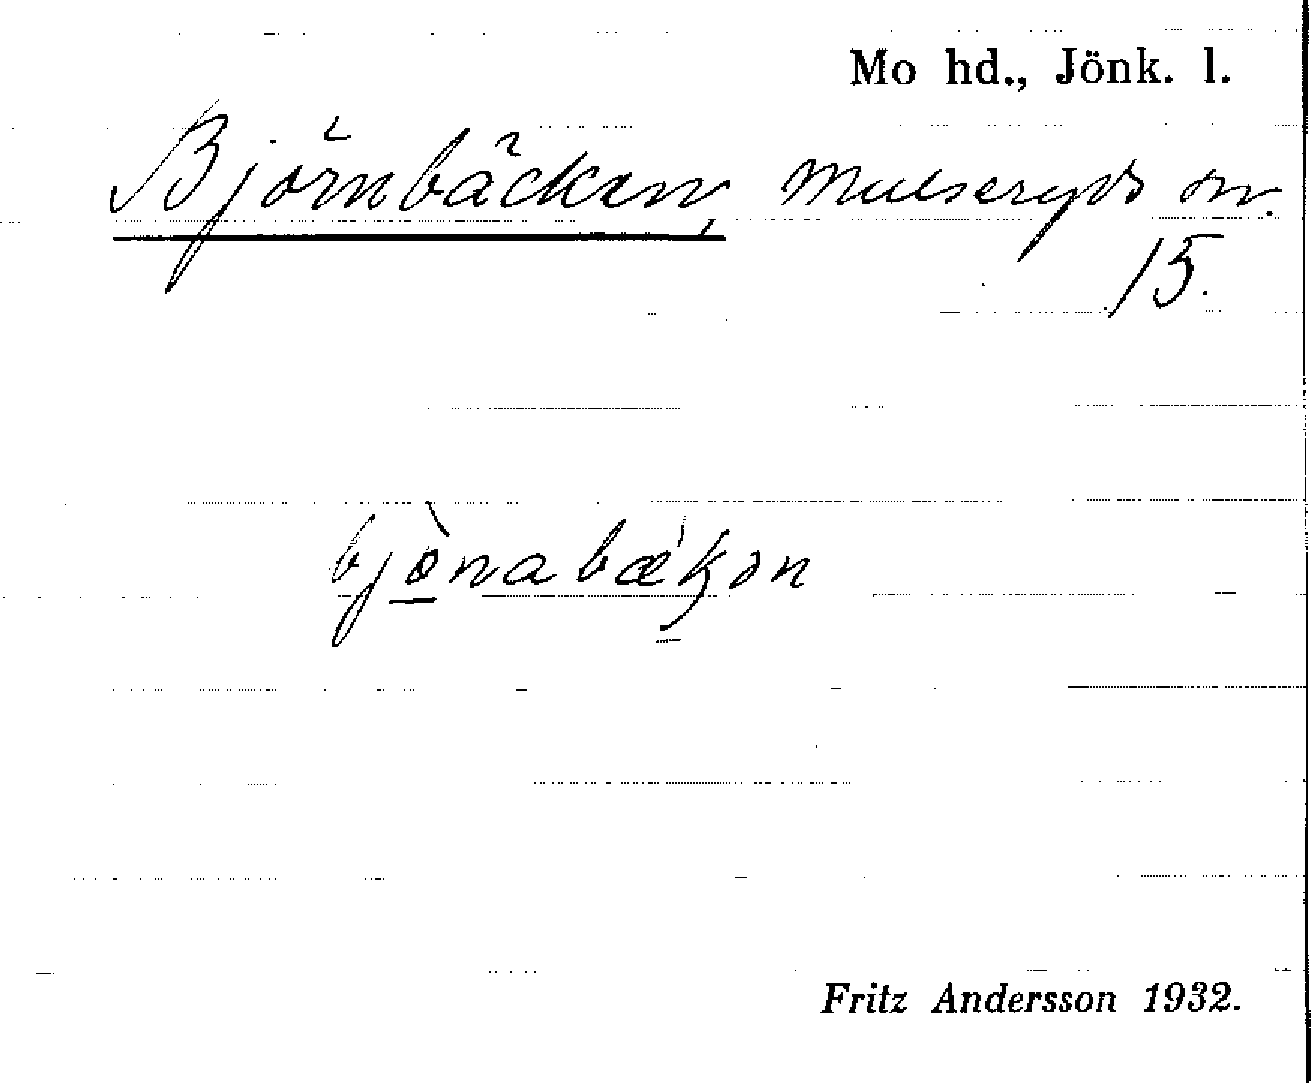 Mo hd., Jönk. l.
Björnbäcken, Mulseryds sn.
15.
bjònabǽkən
Fritz Andersson 1932.